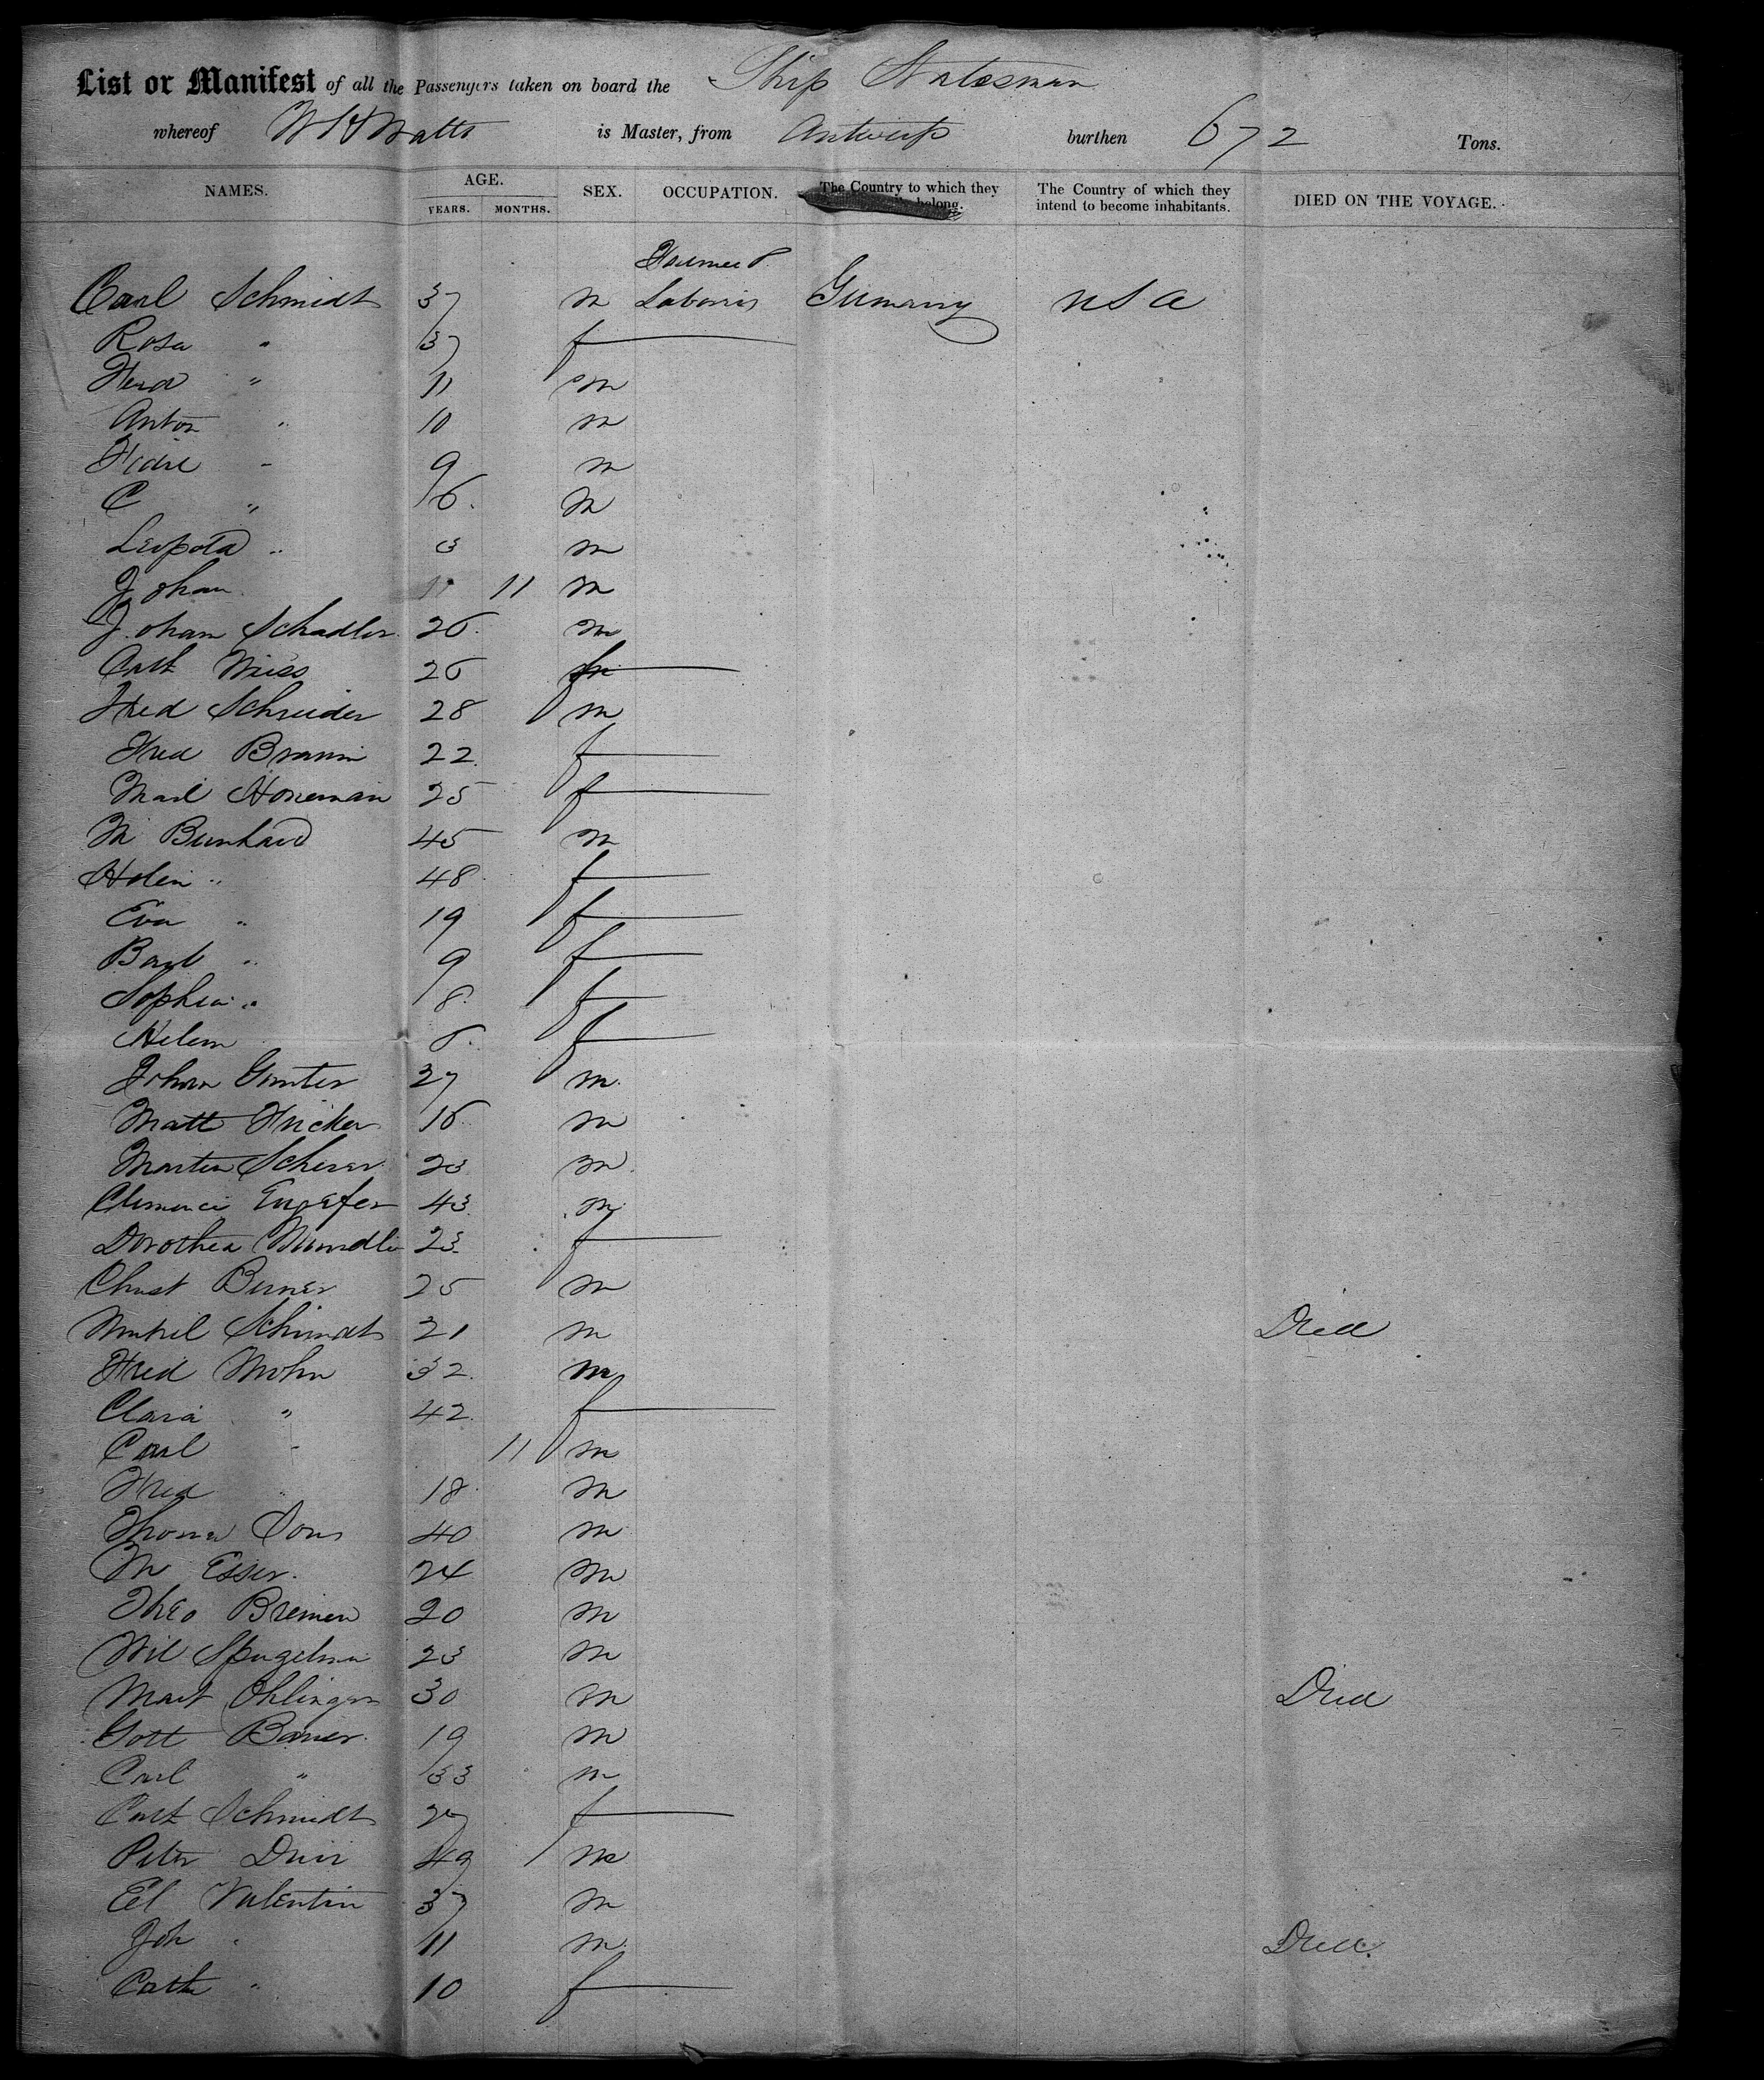 List or Manifest of all the Passengers taken on board the Ship Statesman
whereof W H Watts is Master, from Antwerp burthen 672 Tons.
NAMES. AGE. YEARS. MONTHS. SEX. OCCUPATION. The Country to which they belong. The Country of which they intend to become inhabitants. DIED ON THE VOYAGE.
Farmer &
Carl Schmidt 37 m Laborers Germany U S A
Rosa " 37 f
Ferd " 11 m
Anton " 10 m
" 9 m
C " 6 m
Leopold " 3 m
Johan 11 m
Johann Schadler 26 m
Cath Weiss 26 f
Fred Schneider 28 m
Fred Braun 22 f
Horneman 25 f
M Bernhard 45 m
Helen " 48 f
Eva " 19 f
Barb " 9 f
Sophia " 8 f
Helen f
Johan Gunter 27 m
Matt Fricker 16 m
Martin Scherer 23 m
43 m
Dorothea 23 f
Christ 25 m
Schmidt 21 m Died
Fred Mohn 32 m
Clara " 42 f
Carl " 11 m
Fred " 18 m
40 m
M Esser 24 m
Theo Bremen 20 m
Wil 23 m
Mart Ohlinger 30 m Died
Gott Bauer 19 m
Carl " 33 m
Cath Schmidt 27 f
Peter 49 m
El Valentin 37 m
Joh " 11 m Died
Cath " 10 f